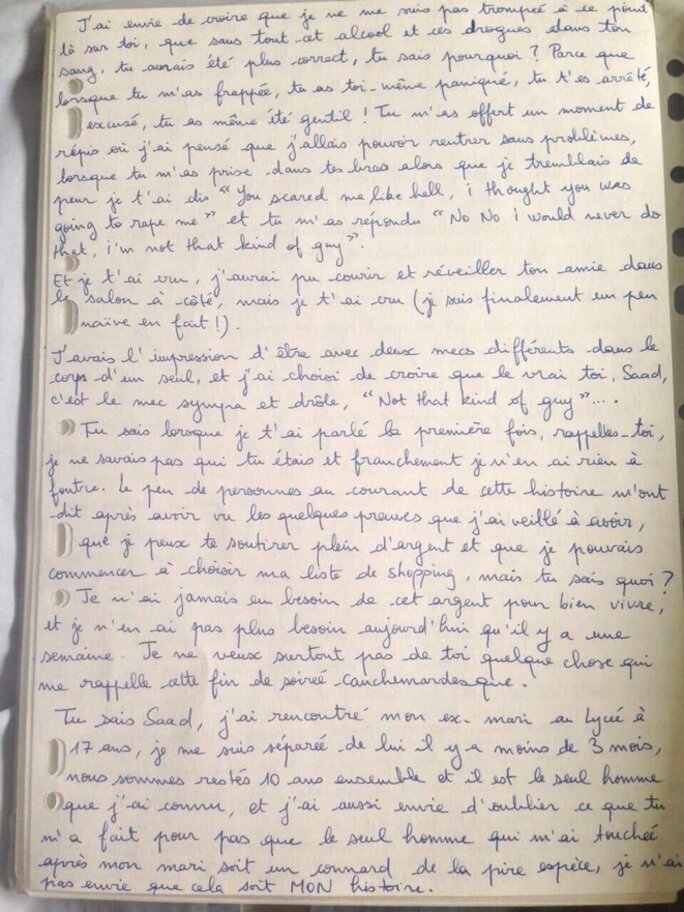 J'ai envie de croire que je ne me suis pas trompée à ce point
là sur toi, que sans tout cet alcool et ces drogues dans ton
sang, tu aurais été plus correct, tu sais pourquoi ? Parce que
lorsque tu m'as frappée, tu as toi-même paniqué, tu t'es arrêté,
excusé, tu as même été gentil ! Tu m'as offert un moment de
répis où j'ai pensé que j'allais pouvoir rentrer sans problèmes,
lorsque tu m'as prise dans tes bras alors que je tremblais de
peur je t'ai dis "You scared me like hell, i thought you was
going to rape me" et tu m'as répondu "No No i would never do
that, i'm not that kind of guy".
Et je t'ai cru, j'aurai pu courir et réveiller ton amie dans
le salon à côté, mais je t'ai cru (je suis finalement un peu
naïve en fait !).
J'avais l'impression d'être avec deux mecs différents dans le
corps d'un seul, et j'ai choisi de croire que le vrai toi, Saad,
c'est le mec sympa et drôle, "Not that kind of guy"....
Tu sais lorsque je t'ai parlé la première fois, rappelles-toi,
je ne savais pas qui tu étais et franchement je n'en ai rien à
foutre. Le peu de personnes au courant de cette histoire m'ont
dit après avoir vu les quelques preuves que j'ai veillé à avoir,
que je peux te soutirer plein d'argent et que je pouvais
commencer à choisir ma liste de shopping, mais tu sais quoi ?
Je n'ai jamais eu besoin de cet argent pour bien vivre,
et je n'en ai pas plus besoin aujourd'hui qu'il y a une
semaine. Je ne veux surtout pas de toi quelque chose qui
me rappelle cette fin de soirée cauchemardesque.
Tu sais Saad, j'ai rencontré mon ex-mari au Lycée à
17 ans, je me suis séparée de lui il y a moins de 3 mois,
nous sommes restés 10 ans ensemble et il est le seul homme
que j'ai connu, et j'ai aussi envie d'oublier ce que tu
m'a fait pour pas que le seul homme qui m'ai touchée
après mon mari soit un connard de la pire espèce, je n'ai
pas envie que cela soit MON histoire.